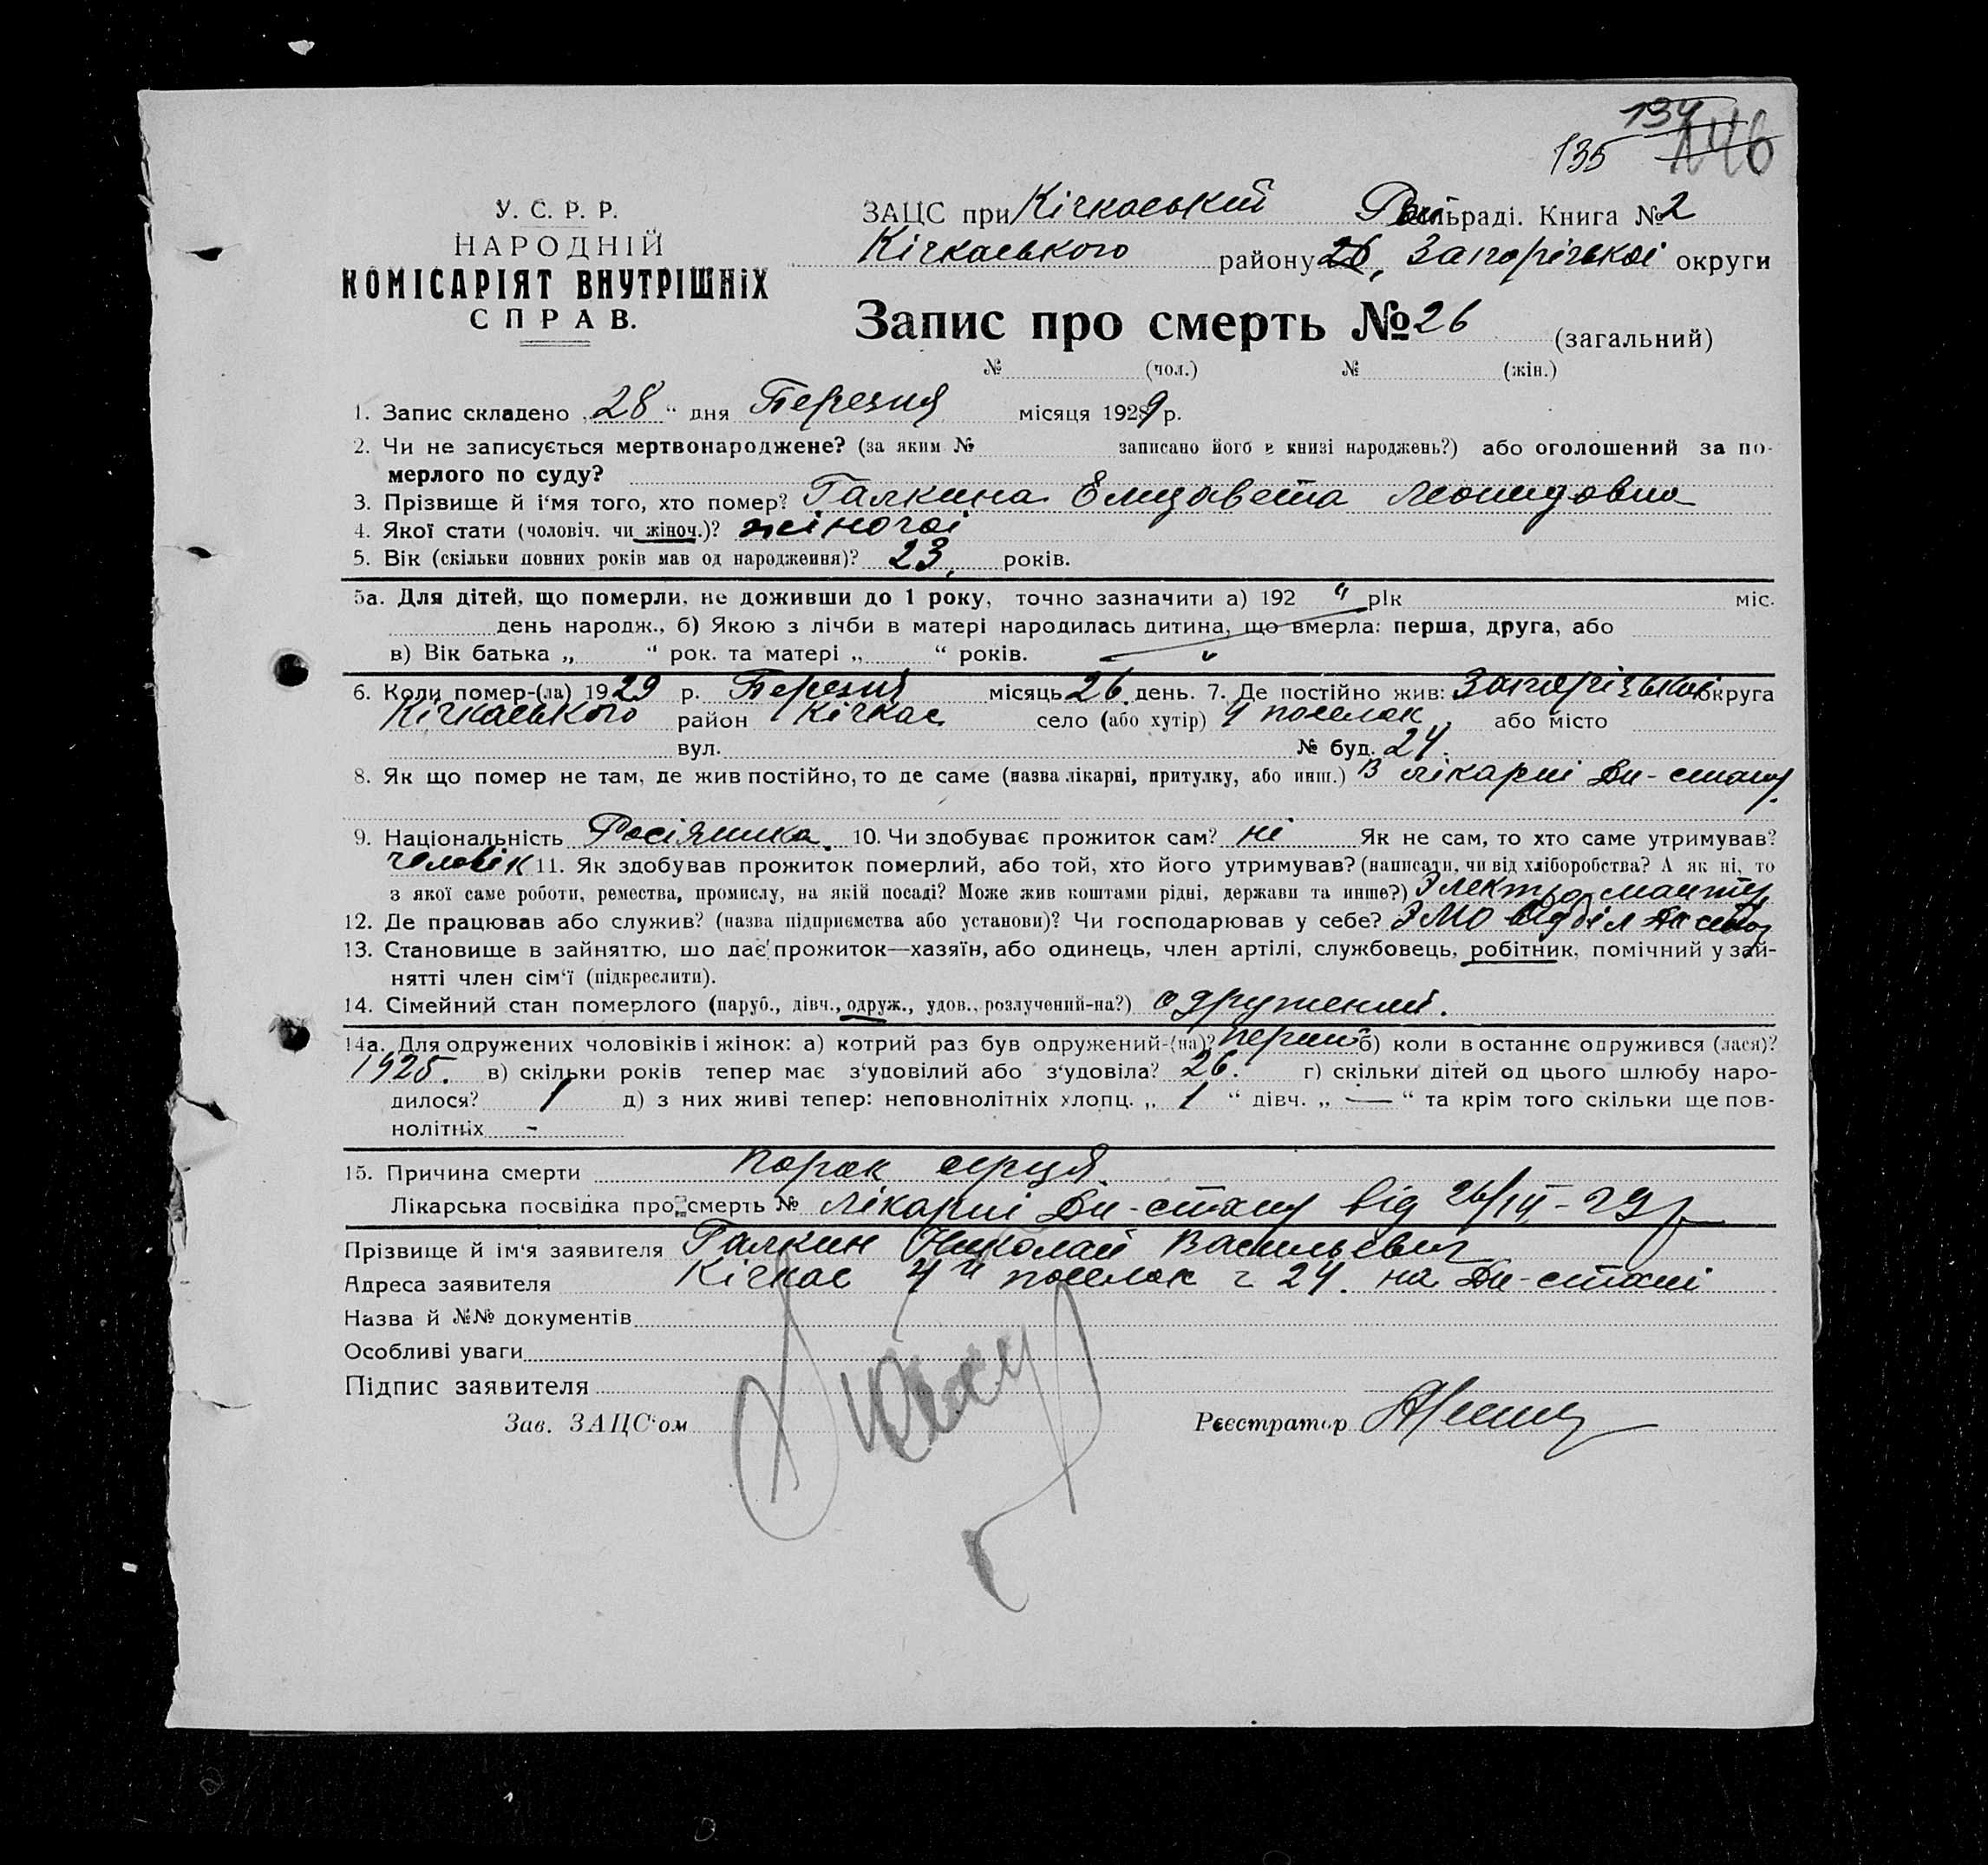 134
135 146
У. С. Р. Р.
НАРОДНІЙ
КОМІСАРІЯТ ВНУТРІШНІХ
СПРАВ.
ЗАЦС при Кічкаський Рай сільраді. Книга № 2
Кічкаського району 26, Запорізької округи
Запис про смерть № 26 (загальний)
№ (чол.) № (жін.)
1. Запис складено „28“ дня Березня місяця 1929 р.
2. Чи не записується мертвонароджене? (за яким № записано його в книзі народжень?) або оголошений за по-
мерлого по суду?
3. Прізвище й і‘мя того, хто помер? Галкина Елизавета Леонидовна
4. Якої стати (чоловіч. чи жіноч.)? жіночої
5. Вік (скільки повних років мав од народження)? 23, років.
5а. Для дітей, що померли, не доживши до 1 року, точно зазначити а) 192 „ рік міс.
день народж., б) Якою з лічби в матері народилась дитина, що вмерла: перша, друга, або
в) Вік батька „ “ рок. та матері „ “ років. „
6. Коли помер-(ла) 1929 р. Березня місяць 26 день. 7. Де постійно жив: Запорізької округа
Кічкаського район Кічкас село (або хутір) 4 поселок, або місто
вул. № буд. 24.
8. Як що помер не там, де жив постійно, то де саме (назва лікарні, притулку, або инш.) В лікарні Дн-стану.
9. Національність Росіянка. 10. Чи здобуває прожиток сам? ні Як не сам, то хто саме утримував?
человік 11. Як здобував прожиток померлий, або той, хто його утримував? (написати, чи від хліборобства? А як ні, то
з якої саме роботи, ремества, промислу, на якій посаді? Може жив коштами рідні, держави та инше?) Электромонтер
12. Де працював або служив? (назва підприємства або установи)? Чи господарював у себе? ЭМО відділ Дн стану
13. Становище в зайняттю, шо дає прожиток—хазяїн, або одинець, член артілі, службовець, робітник, помічний у зай-
нятті член сім‘ї (підкреслити).
14. Сімейний стан померлого (паруб., дівч., одруж., удов., розлучений-на?) одружений.
14а. Для одружених чоловіків і жінок: а) котрий раз був одружений-(на)? перший б) коли востаннє одружився (лася)?
1925. в) скільки років тепер має з‘удовілий або з‘удовіла? 26. г) скільки дітей од цього шлюбу наро-
дилося? 1 д) з них живі тепер: неповнолітніх хлопц. „ 1 “ дівч. „ — “ та крім того скільки ще пов-
нолітніх -
15. Причина смерти порок серця.
Лікарська посвідка про смерть № лікарні Дн-стану від 26/III-29 р
Прізвище й ім‘я заявителя Галкин Николай Васильевич
Адреса заявителя Кічкас 4й поселок г 24. на Дн-стані
Назва й №№ документів
Особливі уваги
Підпис заявителя
Зав. ЗАЦС‘ом Реєстратор